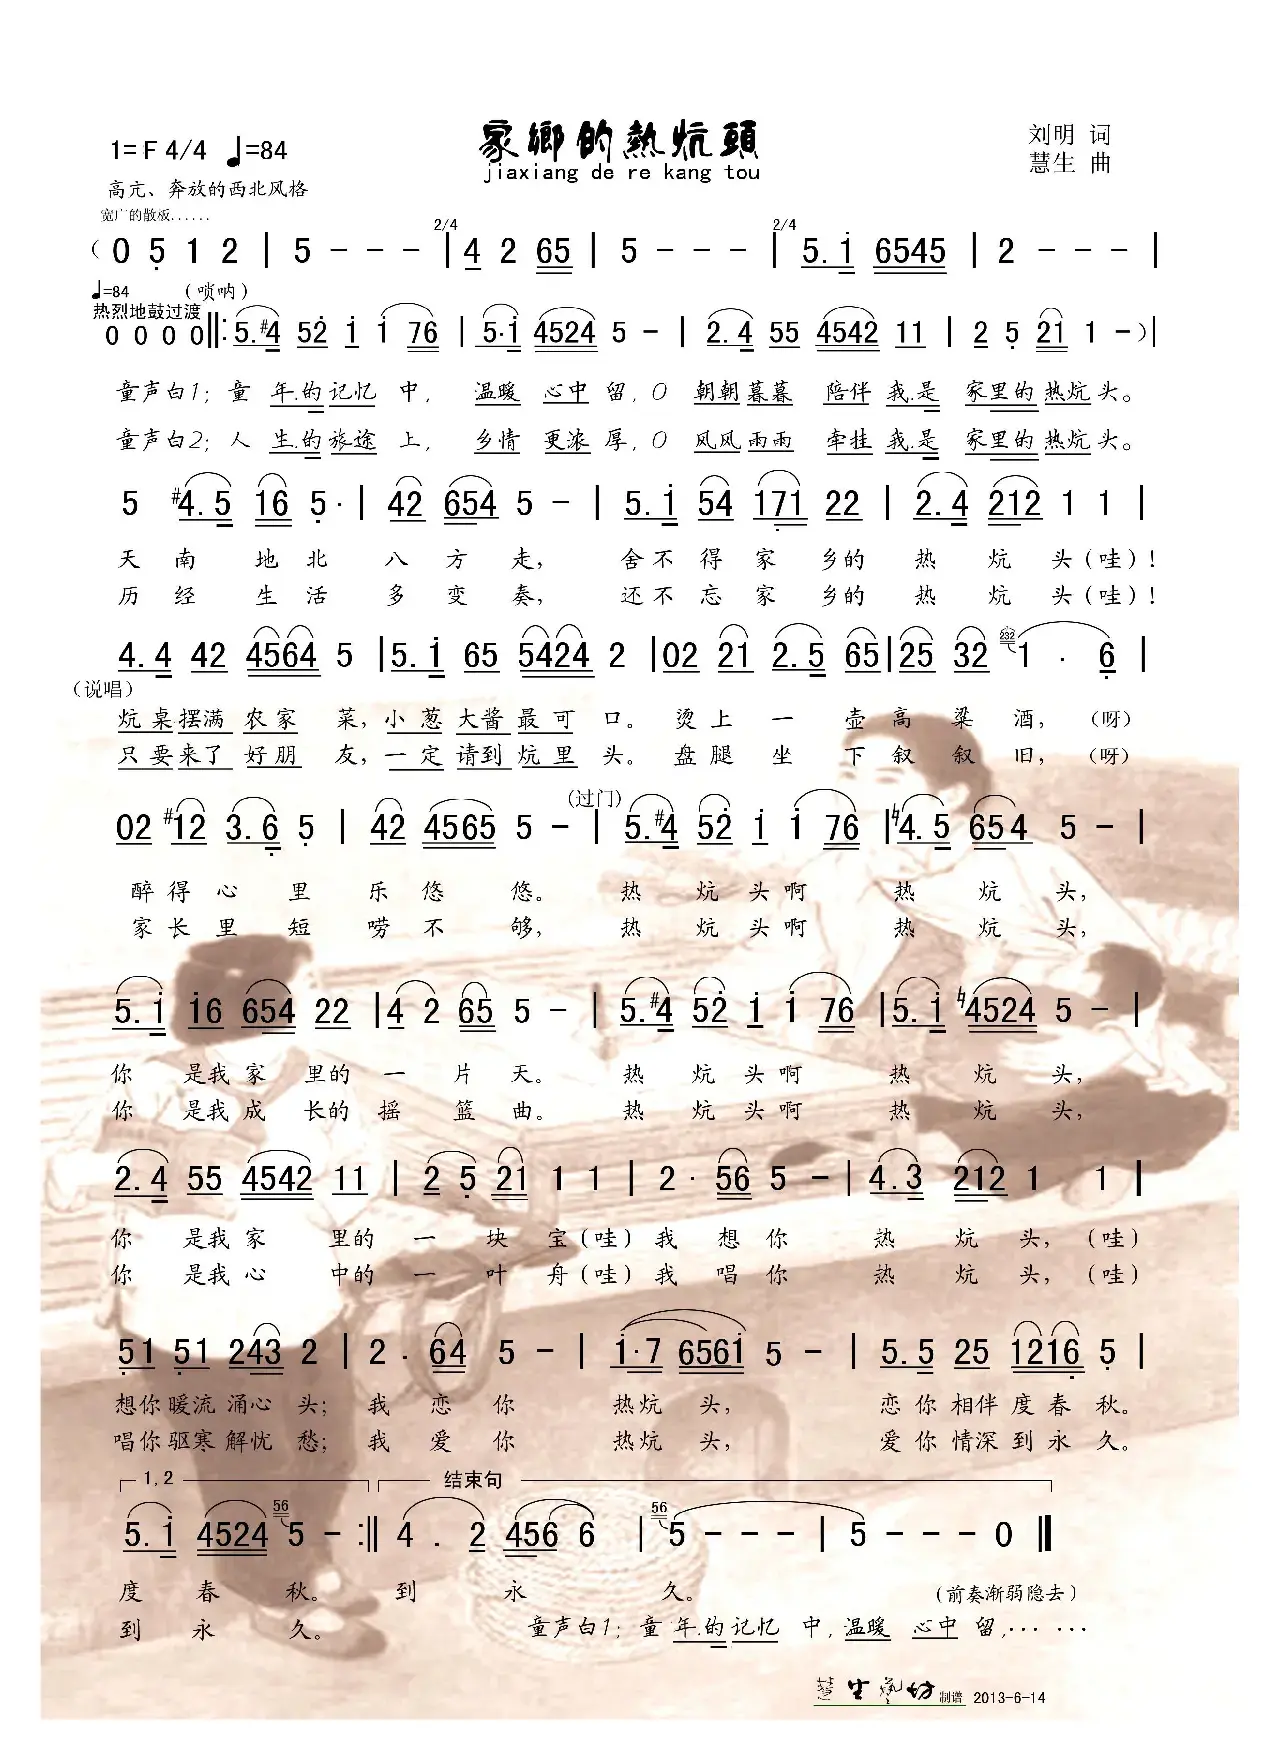 家鄉的熱炕頭
jiaxiang de re kang tou
1= F 4/4 ♩=84
刘明 词
慧生 曲
高亢、奔放的西北风格
宽广的散板......
2/4 2/4
( 0 5 1 2 | 5 - - - | 4 2 65 | 5 - - - | 5.i 6545 | 2 - - - |
♩=84 (唢呐)
热烈地鼓过渡
0 0 0 0 ‖: 5.#4 52 i i 76 | 5·i 4524 5 - | 2.4 55 4542 11 | 2 5 21 1 - ) |
童声白1; 童 年.的 记忆 中, 温暖 心中 留, O 朝朝 暮暮 陪伴 我.是 家里的 热炕 头。
童声白2; 人 生.的 旅途 上, 乡情 更浓 厚, O 风风 雨雨 牵挂 我.是 家里的 热炕 头。
5 #4.5 16 5· | 42 654 5 - | 5.i 54 171 22 | 2.4 212 1 1 |
天 南 地 北 八 方 走, 舍 不 得 家 乡 的 热 炕 头 (哇)!
历 经 生 活 多 变 奏, 还 不 忘 家 乡 的 热 炕 头 (哇)!
4.4 42 4564 5 | 5.i 65 5424 2 | 02 21 2.5 65 | 25 32 232 1 · 6 |
(说唱)
炕 桌 摆满 农家 菜, 小 葱 大酱 最 可 口。 烫 上 一 壶 高 粱 酒, (呀)
只 要 来了 好朋 友, 一 定 请到 炕 里 头。 盘 腿 坐 下 叙 叙 旧, (呀)
(过门)
02 #12 3.6 5 | 42 4565 5 - | 5.#4 52 i i 76 | ♮4.5 654 5 - |
醉 得 心 里 乐 悠 悠。 热 炕 头 啊 热 炕 头,
家 长 里 短 唠 不 够, 热 炕 头 啊 热 炕 头,
5.i i6 654 22 | 4 2 65 5 - | 5.#4 52 i i 76 | 5.i ♮4524 5 - |
你 是我 家 里的 一 片 天。 热 炕 头 啊 热 炕 头,
你 是我 成 长的 摇 篮 曲。 热 炕 头 啊 热 炕 头,
2.4 55 4542 11 | 2 5 21 1 1 | 2· 56 5 - | 4.3 212 1 1 |
你 是我 家 里的 一 块 宝 (哇) 我 想 你 热 炕 头, (哇)
你 是我 心 中的 一 叶 舟 (哇) 我 唱 你 热 炕 头, (哇)
51 51 243 2 | 2 · 64 5 - | i·7 656i 5 - | 5.5 25 1216 5 |
想你 暖流 涌心 头; 我 恋 你 热炕 头, 恋 你 相伴 度 春 秋。
唱你 驱寒 解忧 愁; 我 爱 你 热炕 头, 爱 你 情深 到 永 久。
1, 2 结束句
5.i 4524 56 5 - :‖ 4 . 2 456 6 | 56 5 - - - | 5 - - 0 ‖
度 春 秋。 到 永 久。 (前奏渐弱隐去)
到 永 久。 童声白1; 童 年.的 记忆 中, 温暖 心中 留, ... ...
慧生艺坊 制谱 2013-6-14